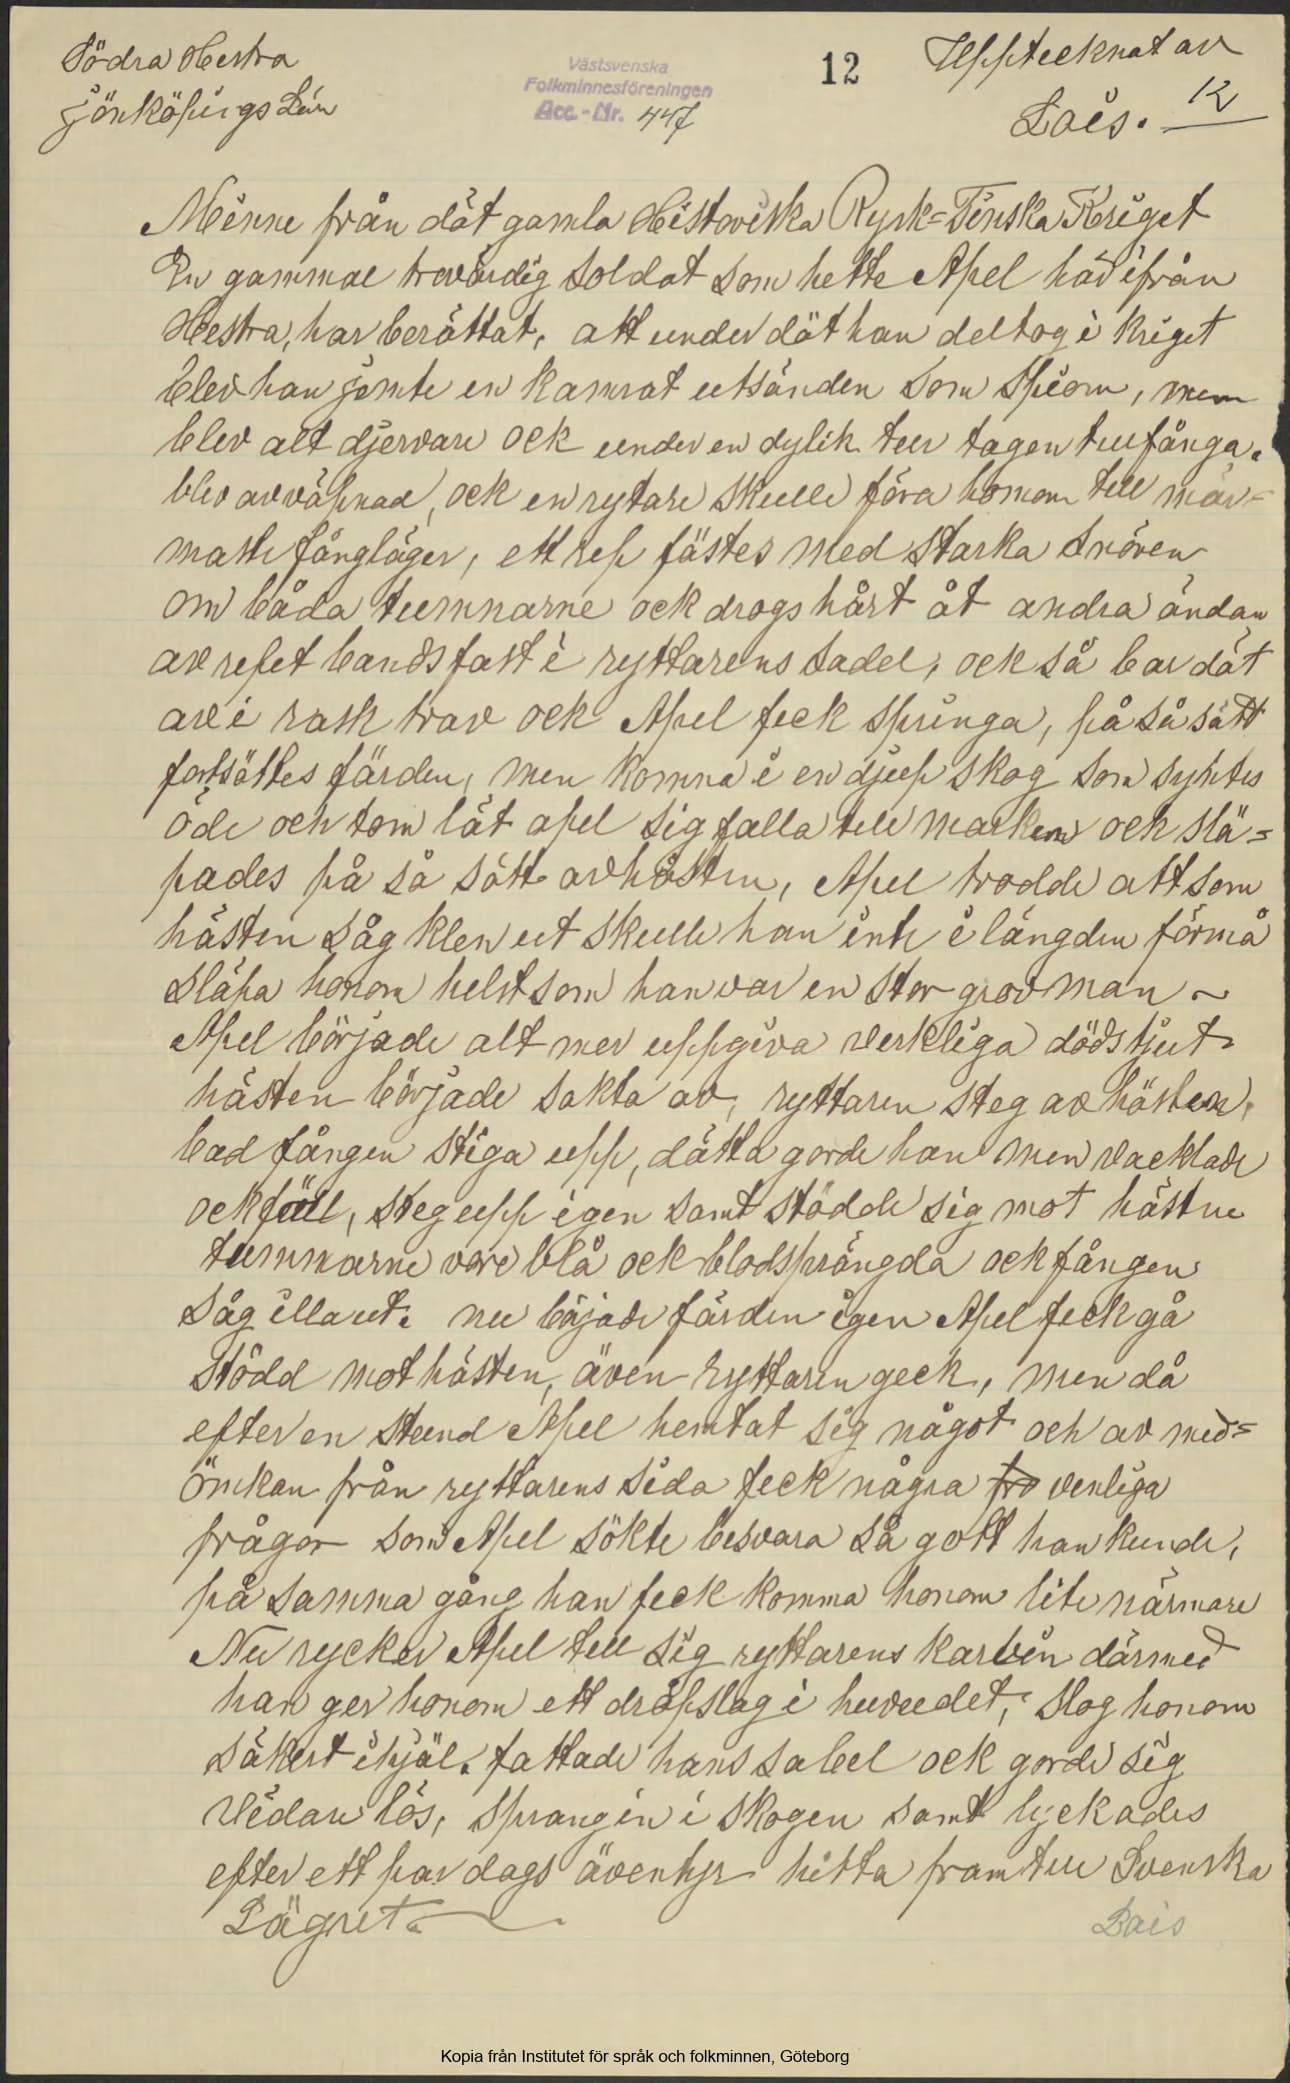 Södra Hestra
Jönköpings Län
Västsvenska
Folkminnesföreningen
Acc.-Nr. 447
12
Upptecknat av
Lais. 12
Minne från dät gamla Historiska Rysk=Finska Kriget
En gammal trovärdig soldat som hette Apel härifrån
Hestra, har berättat, att under dät han deltog i kriget
blev han jemte en kamrat utsänden som spion, men
blev alt djervare ock under en dylik tur tagen tillfånga.
blev avväpnad, ock en rytare skulle föra honom till när=
maste fångläger, ett rep fästes med starka snören
om båda tummarne ock drogs hårt åt andra ändan
av repet bands fast i ryttarens sadel, ock så bar dät
av i rask trav ock Apel feck springa, på så sätt
fortsättes färden, men komna i en djup skog som syntes
öde och tom lät apel sig falla till marken ock slä=
pades på så sätt av hästen, Apel trodde att som
hästen såg klen ut skulle han inte i längden förmå
släpa honom helst som han var en stor grov man ~
Apel började alt mer uppgiva verkliga dödstjut
hästen började sakta av, ryttaren steg av hästen,
bad fången stiga upp, dätta gorde han men vacklade
ock föll, steg upp igen samt stödde sig mot hästen
tummarne vore blå ock blodsprängda ock fången
såg illa ut. nu böjade färden igen Apel feck gå
stödd mot hästen, även ryttaren geck, men då
efter en stund Apel hemtat sig något och av med=
önkan från ryttarens sida feck några fro venliga
frågor som Apel sökte besvara så gott han kunde,
på samma gång han feck komma honom lite närmare
Nu rycker Apel till sig ryttarens karbin därmed
han ger honom ett dråpslag i huvudet, slog honom
säkert ihjäl. fattade hans sabel ock gorde sig
vidare lös, sprang in i skogen samt lyckades
efter ett par dags äventyr hitta fram till Svenska
Lägret.
Lais
Kopia från Institutet för språk och folkminnen, Göteborg